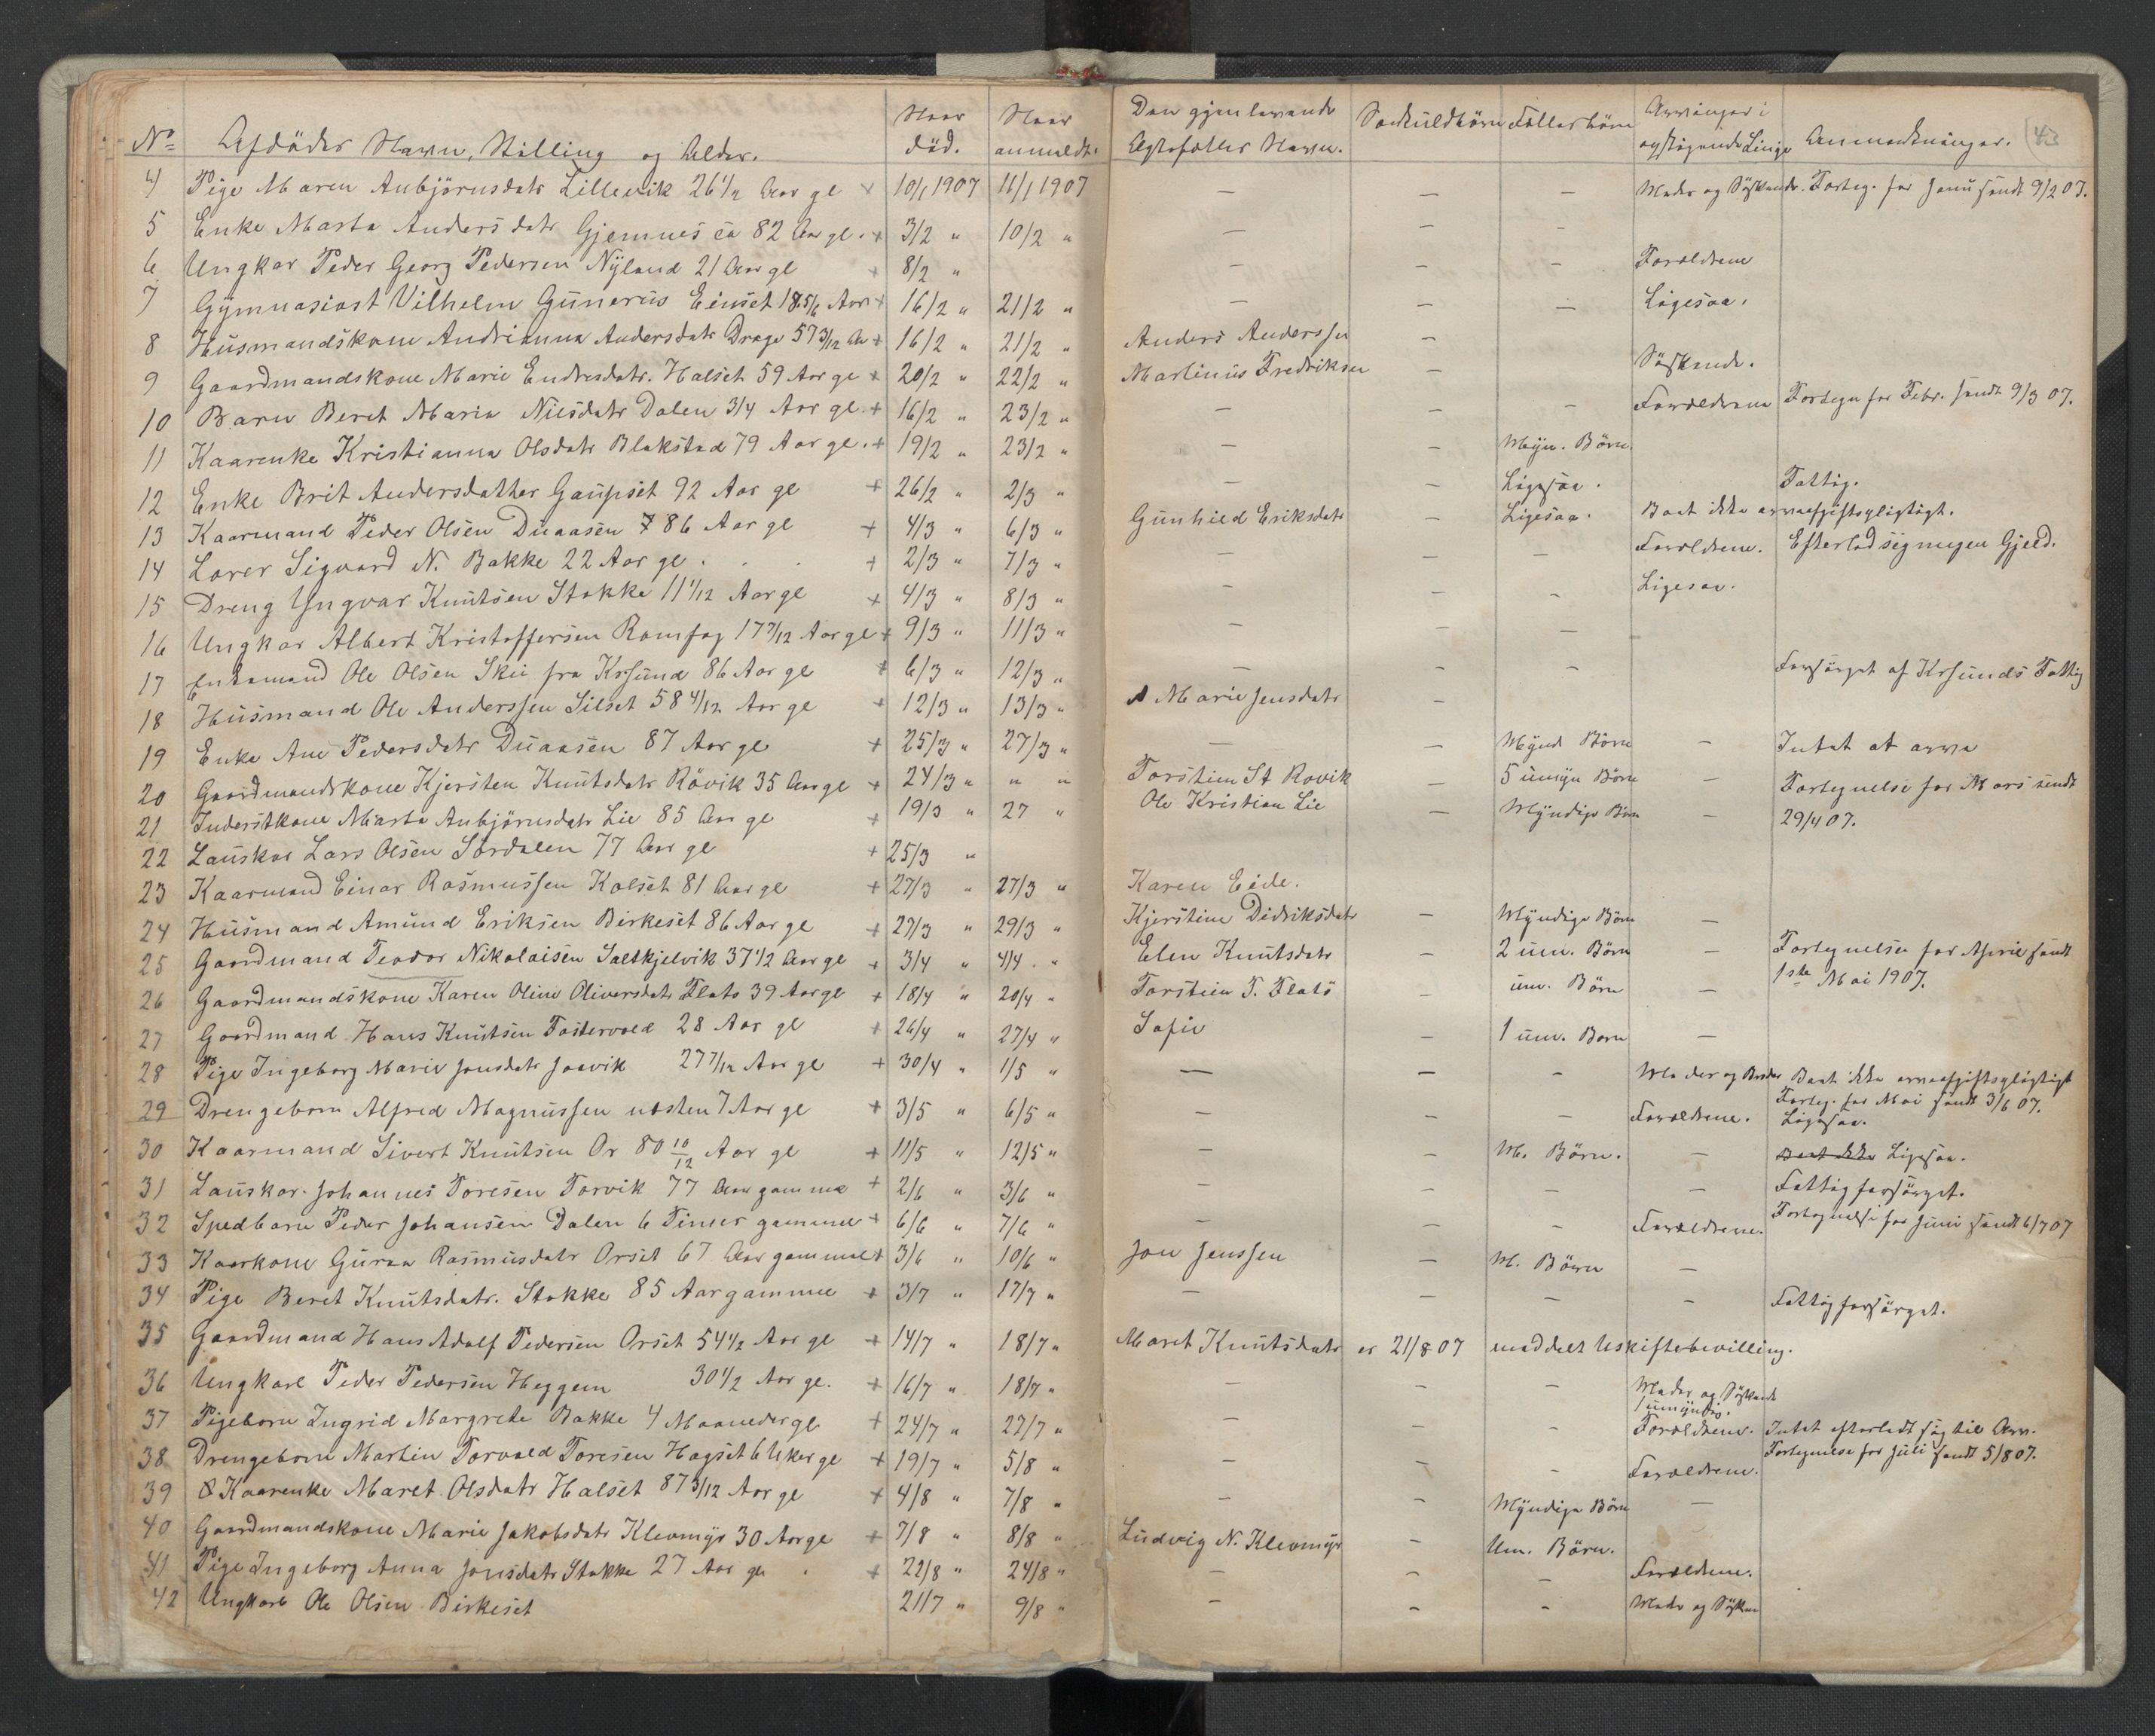 No Afdødes Navn, Stilling og Alder. Naar død. Naar anmeldt. Den gjenlevende Ægtefælles Navn. Særkuldbørn Fællesbørn Arvinger i opstigende Linje Anmærkninger. 43
4 Pige Maren Anbjørnsdatr Lillevik 26 1/2 Aar gl + 10/1 1907 11/1 1907 — — — Moder og Søskende. Forteg. for Janu sendt 9/2 07.
5 Enke Marta Andersdatr Gjemnes ca 82 Aar gl. + 3/2 " 10/2 " — — —
6 Ungkar Peder Georg Pedersen Nyland 21 Aar gl + 8/2 " — — — Forældrene
7 Gymnasiast Vilhelm Gunerius Einset 18 5/6 Aar + 16/2 " 21/2 " — — — Ligesaa.
8 Husmandskone Andrianna Andersdatr Drage 57 3/12 Aa + 16/2 " 21/2 " Anders Anderssen —
9 Gaardmandskone Marie Endresdatr. Halset 59 Aar gl + 20/2 " 22/2 " Martinus Fredriksen — Søskende.
10 Barn Beret Maria Nilsdatr Dalen 3/4 Aar gl. + 16/2 " 23/2 " — — — Forældrene Fortegn for Febr. sendt 9/3 07.
11 Kaarenke Kristianna Olsdatr Blakstad 79 Aar gl. + 19/2 " 23/2 " — — Myn. Børn.
12 Enke Brit Andersdatter Gaupset 92 Aar gl + 26/2 " 2/3 " — — Ligesaa. Fattig.
13 Kaarmand Peder Olsen Duaasen 86 Aar gl + 4/3 " 6/3 " Gunhild Eriksdatr — Ligesaa. Boet ikke arveafgiftspligtigt.
14 Lærer Sigvard N. Bakke 22 Aar gl. + 2/3 " 7/3 " — — — Forældrene. Efterlod sig megen Gjeld.
15 Dreng Yngvar Knutsen Stokke 11 1/12 Aar gl + 4/3 " 8/3 " — — — Ligesaa.
16 Ungkar Albert Kristoffersen Romfog 17 7/12 Aar gl + 9/3 " 11/3 " — — — —
17 Enkemand Ole Olsen Skii fra Krsund 86 Aar gl + 6/3 " 12/3 " — — — Forsørget af Krsunds Fattig
18 Husmand Ole Anderssen Silset 58 4/12 Aar gl + 12/3 " 13/3 " Marie Jensdatr —
19 Enke Ane Pedersdatr Duaasen 87 Aar gl + 25/3 " 27/3 " — — Mynd Børn — Intet at arve
20 Gaardmandskone Kjersten Knutsdatr Røvik 35 Aar gl + 24/3 " " " Torstein St Røvik — 5 umyn Børn — Fortegnelse for Mars sendt
21 Inderstkone Marta Anbjørnsdatr Lie 85 Aar gl + 19/3 " 27 " Ole Kristian Lie — Myndige Børn — 29/4 07.
22 Lauskar Lars Olsen Sørdalen 77 Aar gl + 25/3 "
23 Kaarmand Einar Rasmussen Kolset 81 Aar gl + 27/3 " 27/3 " Karen Eide.
24 Husmand Amund Eriksen Birkeset 86 Aar gl + 27/3 " 29/3 " Kjerstine Didriksdatr — Myndige Børn —
25 Gaardmand Teodor Nikolaisen Saltkjelvik 37 1/2 Aar gl + 3/4 " 4/4 " Elen Knutsdatr — 2 um. Børn — Fortegnelse for April sendt
26 Gaardmandskone Karen Oline Oliversdatr Flatø 39 Aar gl + 18/4 " 20/4 " Torstein T. Flatø — um. Børn — 1ste Mai 1907.
27 Gaardmand Hans Knutsen Fostervold 28 Aar gl + 26/4 " 27/4 " Sofie — 1 um. Barn —
28 Pige Ingeborg Marie Jonsdatr Joavik 27 7/12 Aar gl + 30/4 " 1/5 " — — — Moder og Brødre Boet ikke arveafgiftspligtigt
Forteg. for Mai sendt 3/6 07.
29 Drengebarn Alfred Magnussen næsten 7 Aar gl + 3/5 " 6/5 " — — — Forældrene. Ligesaa.
30 Kaarmand Sivert Knutsen Or 80 10/12 Aar gl + 11/5 " 12/5 " — — M. Børn. — Boet ikke Ligesaa.
31 Lauskar. Johannes Toresen Torvik 77 Aar gammel + 2/6 " 3/6 " — — — — Fattigforsørget.
32 Spedbarn Peder Johansen Dalen 6 Timer gammel + 6/6 " 7/6 " — — — Forældrene. Fortegnelse for Juni sendt 6/7 07
33 Kaarkone Guraa Rasmusdatr Orset 67 Aar gammel + 3/6 " 10/6 " Jon Jenssen — M. Børn —
34 Pige Beret Knutsdatr. Stokke 85 Aar gammel + 3/7 " 17/7 " — — — — Fattigforsørget.
35 Gaardmand Hans Adolf Pedersen Orset 54 1/2 Aar gl + 14/7 " 18/7 " Marit Knutsdatr er 21/8 07 meddelt Uskiftebevilling.
36 Ungkarl Peder Pedersen Heggem 30 1/2 Aar gl. + 16/7 " 18/7 " — — — Moder og Søskende
1 umyndig.
37 Pigebarn Ingrid Margrete Bakke 4 Maaneder gl + 24/7 " 27/7 " — — — Forældrene. Intet efterladt sig til Arv.
Fortegnelse for Juli sendt 5/8 07.
38 Drengebarn Martin Torvald Toresen Hogset 6 Uker gl + 19/7 " 5/8 " — — — Forældrene.
39 Kaarenke Maret Olsdatr Halset 87 3/12 Aar gl + 4/8 " 7/8 " — — Myndige Børn —
40 Gaardmandskone Marie Jakobsdatr Klevmyr 30 Aar gl + 7/8 " 8/8 " Ludvig N. Klevmyr — Um. Børn.
41 Pige Ingeborg Anna Jonsdatr Stokke 27 Aar gl + 22/8 " 24/8 " — — — Forældrene.
42 Ungkarl Ole Olsen Birkeset 21/7 " 9/8 " — — — Moder og Søsken